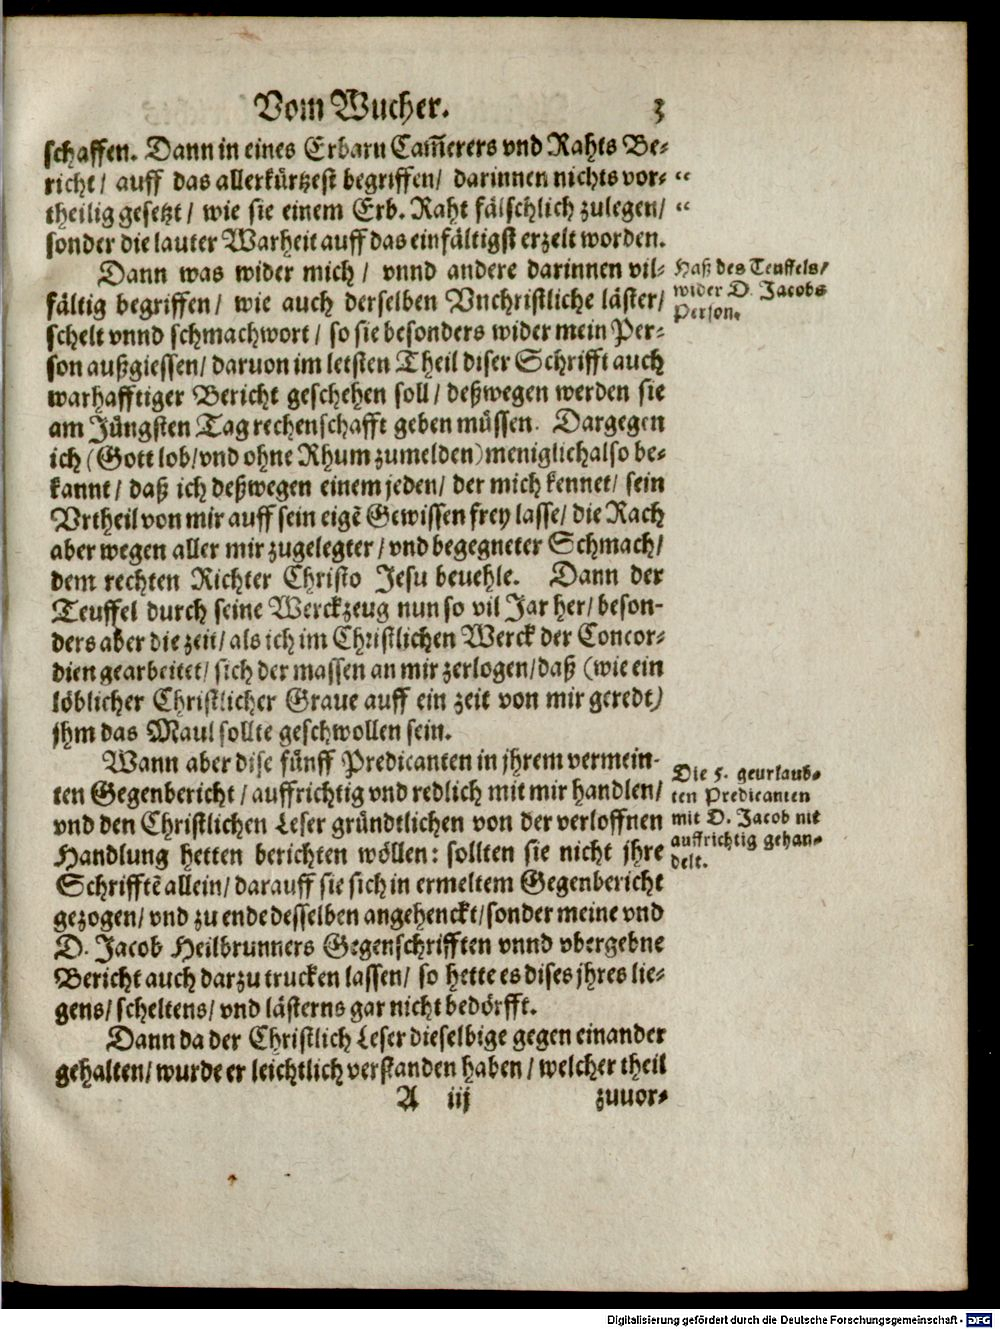 Vom Wucher. 3
schaffen. Dann in eines Erbarn Cam̄erers vnd Rahts Be-
richt / auff das allerkürtzest begriffen / darinnen nichts vor- “
theilig gesetzt / wie sie einem Erb. Raht fälschlich zulegen / “
sonder die lauter Warheit auff das einfältigst erzelt worden.
Dann was wider mich / vnnd andere darinnen vil-
fältig begriffen / wie auch derselben Vnchristliche läster /
schelt vnnd schmachwort / so sie besonders wider mein Per-
son außgiessen / daruon im letsten Theil diser Schrifft auch
warhafftiger Bericht geschehen soll / deßwegen werden sie
am Jüngsten Tag rechenschafft geben müssen. Dargegen
ich (Gott lob / vnd ohne Rhum zumelden) meniglich also be-
kannt / daß ich deßwegen einem jeden / der mich kennet / sein
Vrtheil von mir auff sein eigē Gewissen frey lasse / die Rach
aber wegen aller mir zugelegter / vnd begegneter Schmach /
dem rechten Richter Christo Jesu beuehle. Dann der
Teuffel durch seine Werckzeug nun so vil Jar her / beson-
ders aber die zeit / als ich im Christlichen Werck der Concor-
dien gearbeitet / sich der massen an mir zerlogen / daß (wie ein
löblicher Christlicher Graue auff ein zeit von mir geredt)
jhm das Maul sollte geschwollen sein.
Wann aber dise fünff Predicanten in jhrem vermein-
ten Gegenbericht / auffrichtig vnd redlich mit mir handlen /
vnd den Christlichen Leser gründtlichen von der verloffnen
Handlung hetten berichten wöllen: sollten sie nicht jhre
Schrifftē allein / darauff sie sich in ermeltem Gegenbericht
gezogen / vnd zu ende desselben angehenckt / sonder meine vnd
D. Jacob Heilbrunners Gegenschrifften vnnd vbergebne
Bericht auch darzu trucken lassen / so hette es dises jhres lie-
gens / scheltens / vnd lästerns gar nicht bedörfft.
Dann da der Christlich Leser dieselbige gegen einander
gehalten / wurde er leichtlich verstanden haben / welcher theil
A iij zuuor-
Haß des Teuffels /
wider D. Jacobs
Person.
Die 5. geurlaub-
ten Predicanten
mit D. Jacob nit
auffrichtig gehan-
delt.
Digitalisierung gefördert durch die Deutsche Forschungsgemeinschaft - DFG